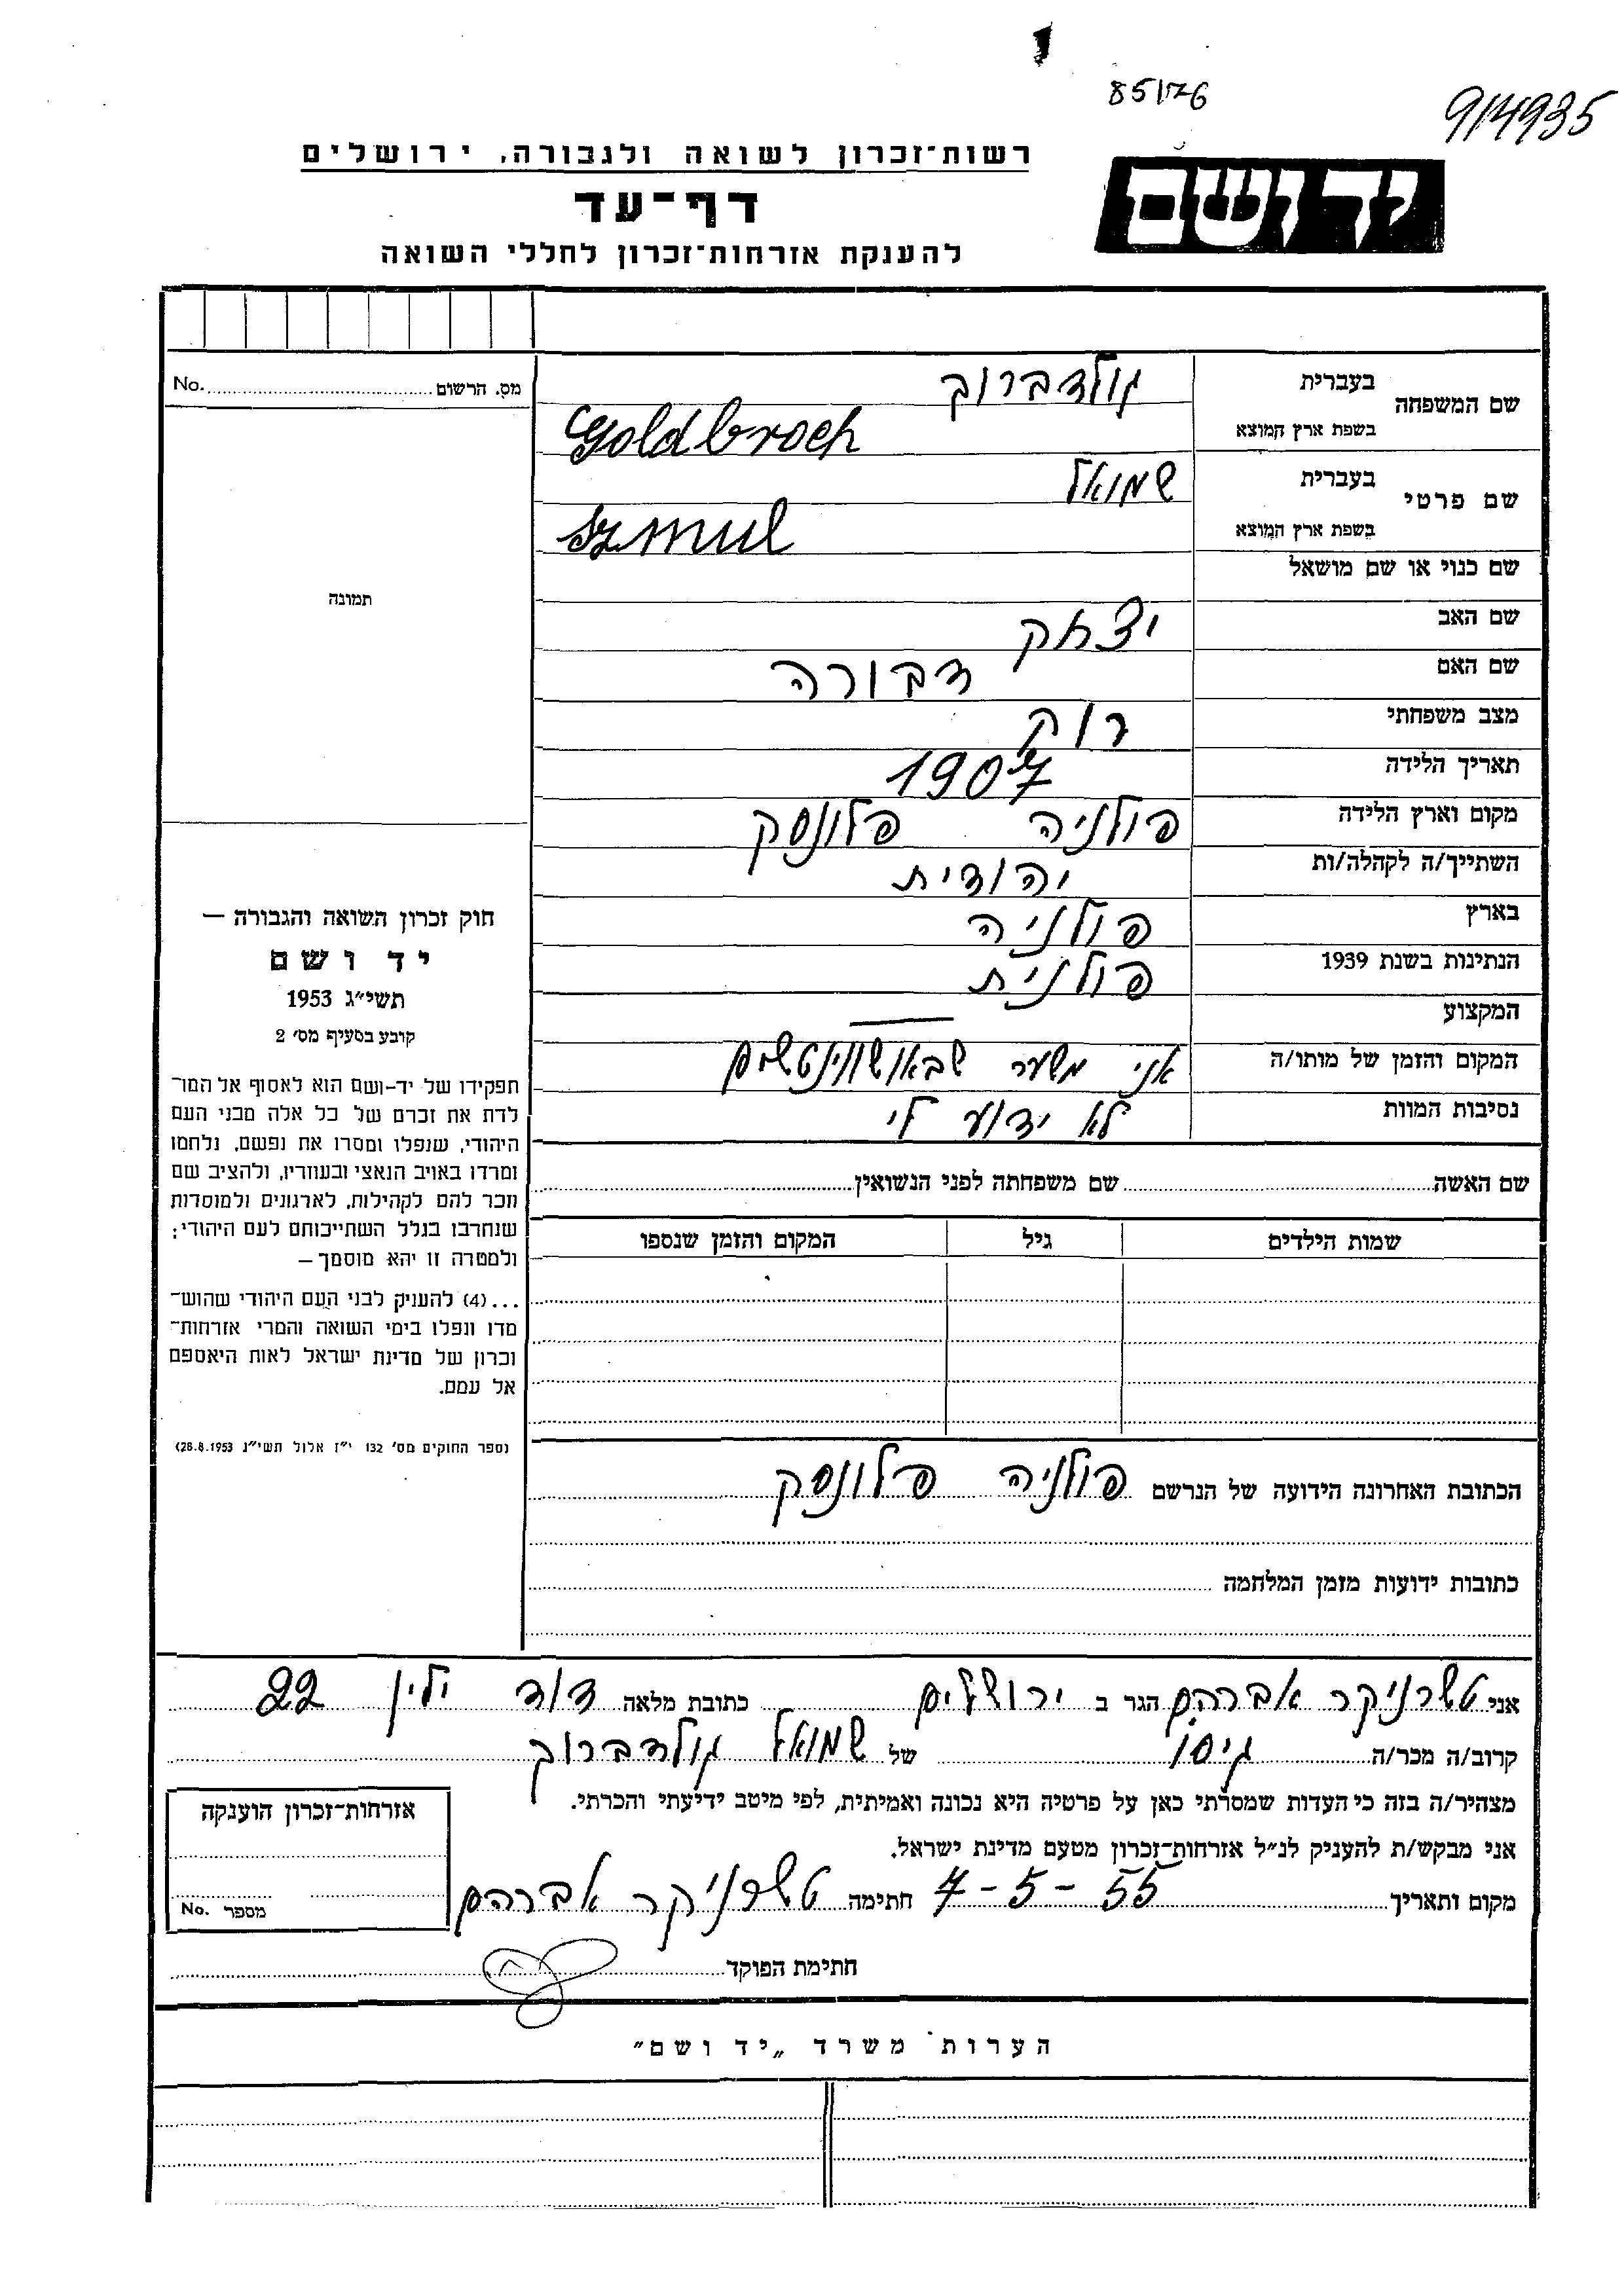 85/176
9/4935
יד ושם
רשות־זכרון לשואה ולגבורה, ירושלים
דף־עד
להענקת אזרחות־זכרון לחללי השואה
מס. הרשום No.
שם המשפחה
בעברית גולדברוך
בשפת ארץ המוצא Goldbroch
שם פרטי
בעברית שמואל
בשפת ארץ המוצא Szmul
שם כנוי או שם מושאל
שם האב יצחק
שם האם דבורה
מצב משפחתי רוק
תאריך הלידה 1907
מקום וארץ הלידה פולניה פלונסק
השתייך/ה לקהלה/ות יהודית
בארץ פולניה
הנתינות בשנת 1939 פולנית
המקצוע —
המקום והזמן של מותו/ה אני משער שבאושווינטשים
נסיבות המוות לא ידוע לי
שם האשה שם משפחתה לפני הנשואין
שמות הילדים גיל המקום והזמן שנספו
הכתובת האחרונה הידועה של הנרשם פולניה פלונסק
כתובות ידועות מזמן המלחמה
תמונה
חוק זכרון השואה והגבורה —
יד ושם
תשי״ג 1953
קובע בסעיף מס׳ 2
תפקידו של יד-ושם הוא לאסוף אל המו־
לדת את זכרם של כל אלה מבני העם
היהודי, שנפלו ומסרו את נפשם, נלחמו
ומרדו באויב הנאצי ובעוזריו, ולהציב שם
וזכר להם לקהילות, לארגונים ולמוסדות
שנחרבו בגלל השתייכותם לעם היהודי;
ולמטרה זו יהא מוסמך —
...(4) להעניק לבני העם היהודי שהוש־
מדו ונפלו בימי השואה והמרי אזרחות־
זכרון של מדינת ישראל לאות היאספם
אל עמם.
(ספר החוקים מס׳ 132 י״ז אלול תשי״ג 28.8.1953)
אני טשרניקר אברהם הגר ב ירושלים כתובת מלאה דוד ילין 22
קרוב/ה מכר/ה גיסו של שמואל גולדברוך
מצהיר/ה בזה כי העדות שמסרתי כאן על פרטיה היא נכונה ואמיתית, לפי מיטב ידיעתי והכרתי.
אני מבקש/ת להעניק לנ״ל אזרחות־זכרון מטעם מדינת ישראל.
מקום ותאריך 7-5-55 חתימה טשרניקר אברהם
חתימת הפוקד
אזרחות־זכרון הוענקה
מספר No.
הערות משרד „יד ושם״